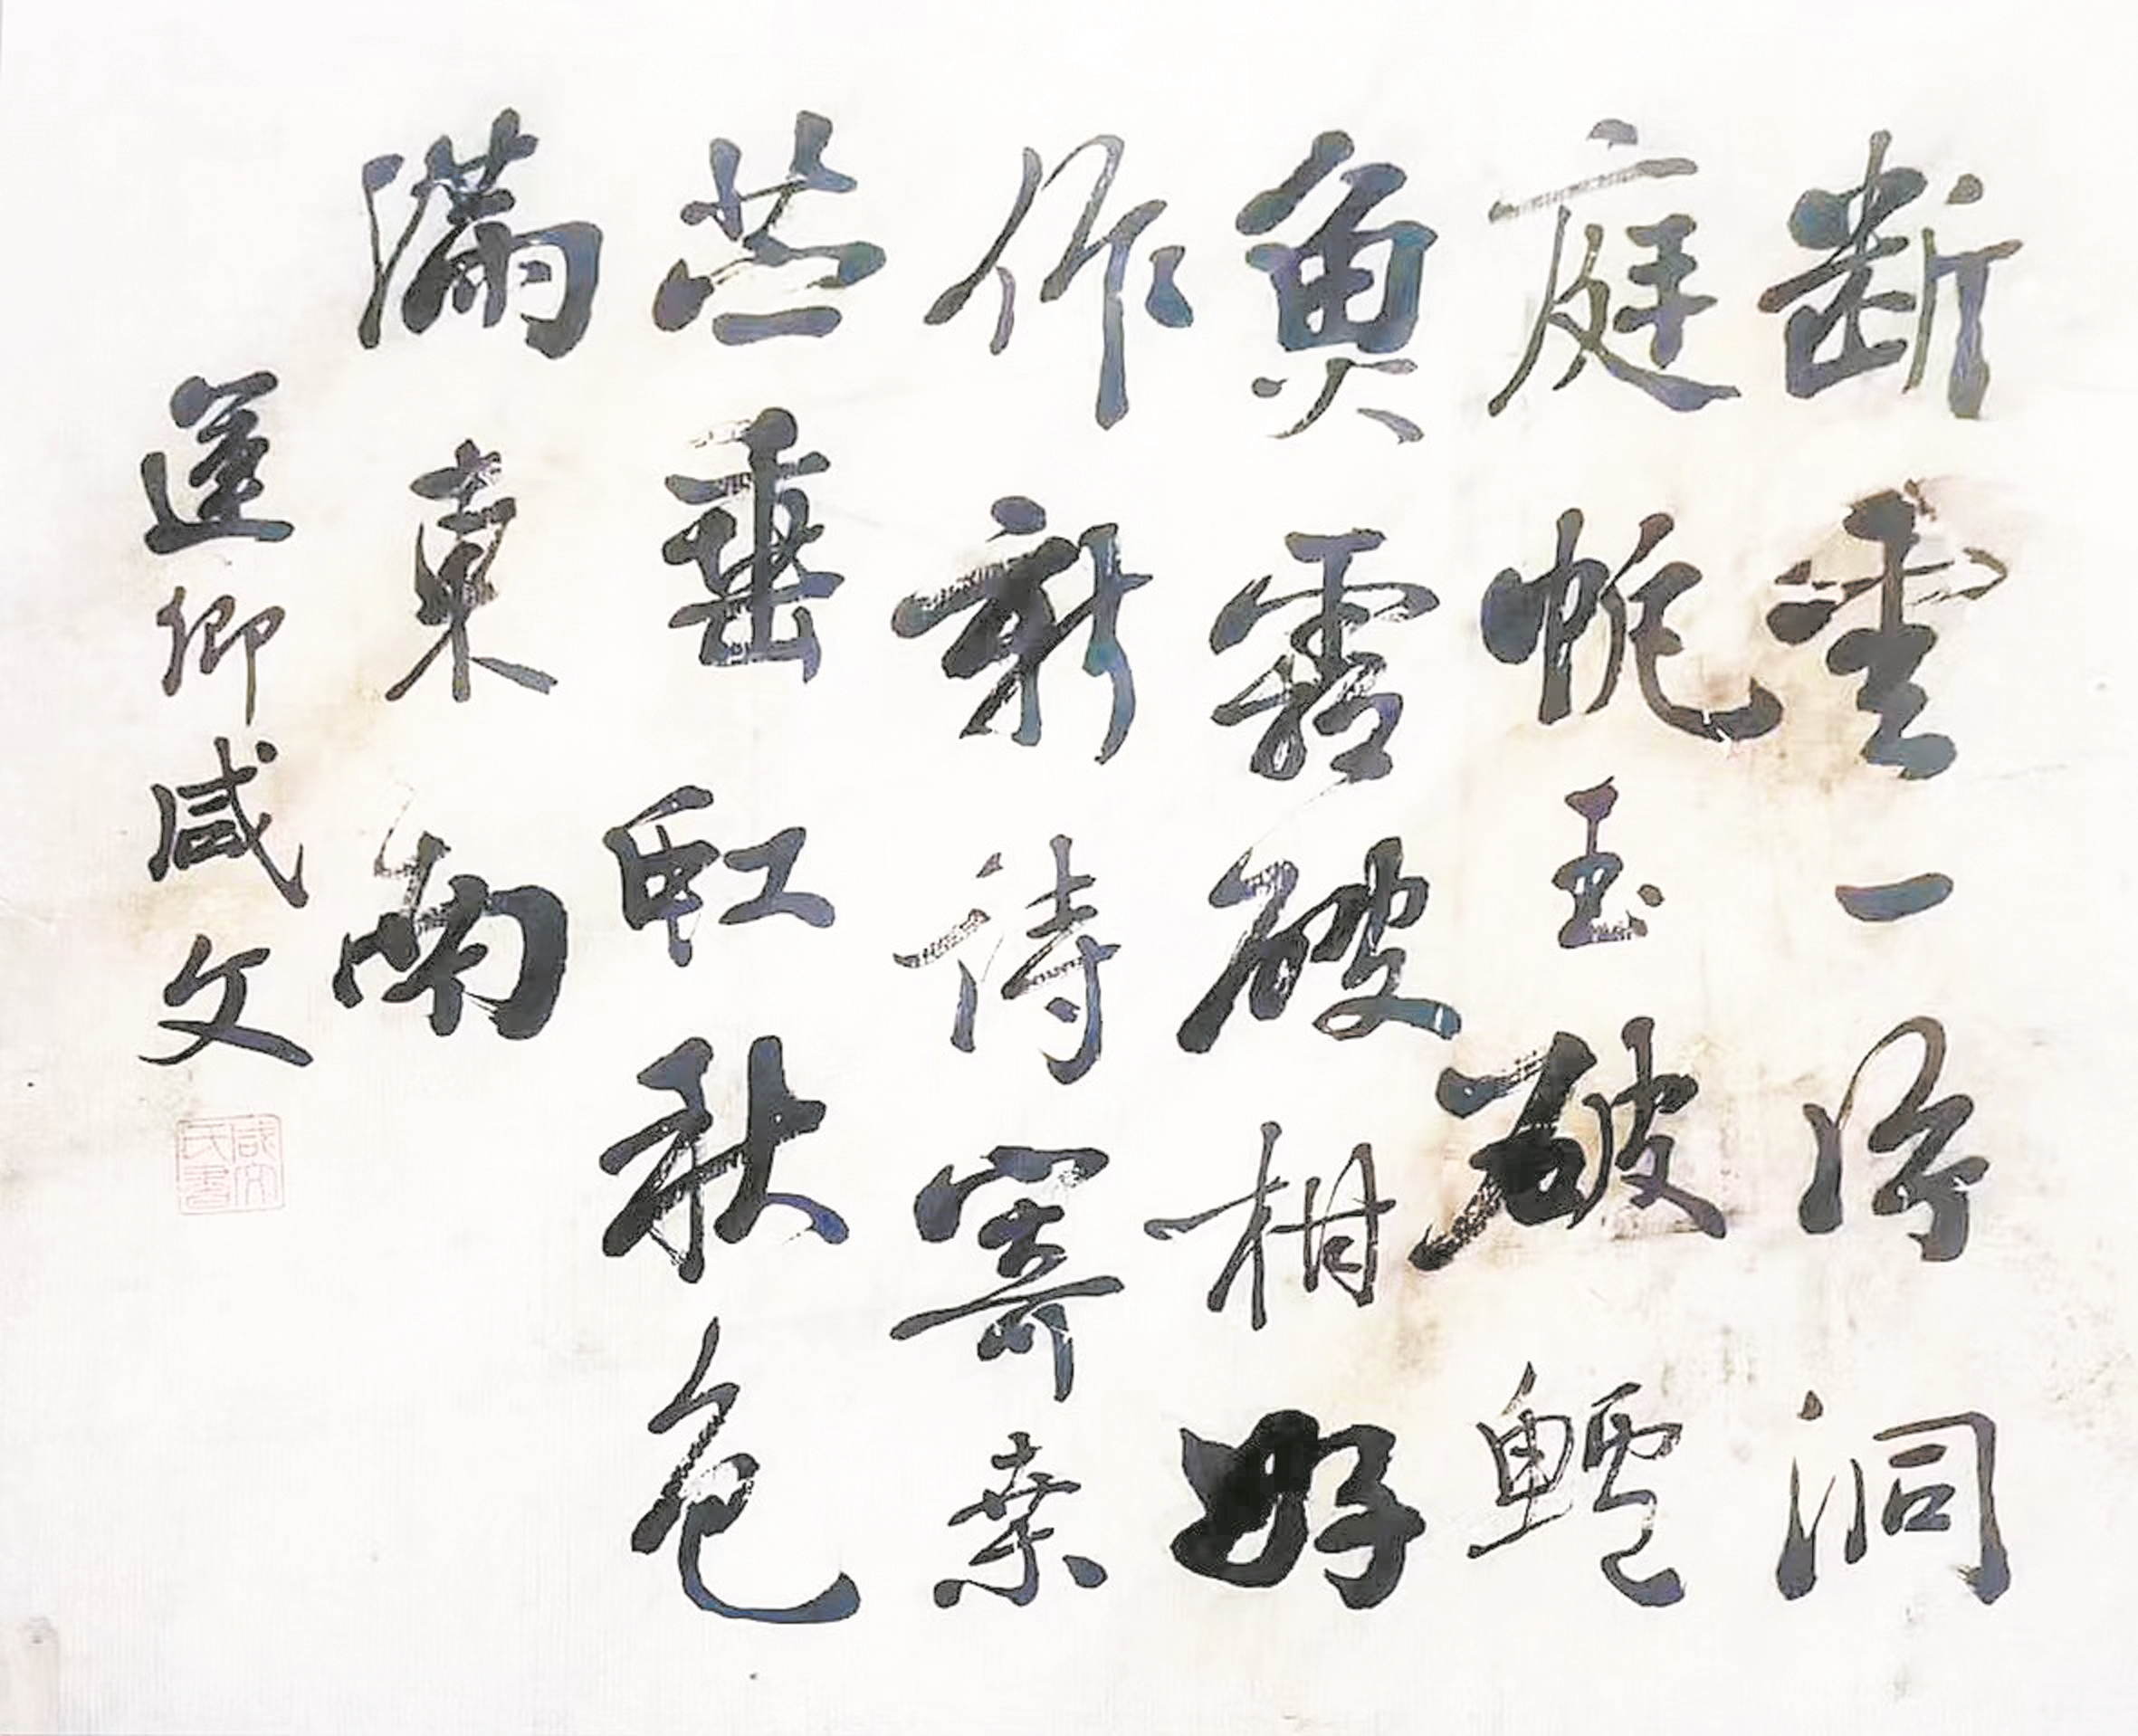 斷雲一片洞
庭帆玉破鱸
魚霜破柑好
作新詩寄桑
苧垂虹秋色
滿東南
卿咸文
咸文氏書